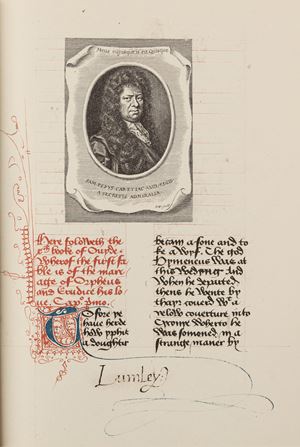 Mens cujusque is est Quisque
SAM. PEPYS. CAR. ET IAC. ANGL. REGIB.
A SECRETIS ADMIRALIÆ
Here foloweth the
booke of Ouyde
Wherof the first fa
ble is of the mar
age of Orpheus
and Erudice his lo
ue. Cap. pmo.
To fore ye
haue herde
how yphit
a doughter
becam a sone and to
be a wyf. The god
Hymeneus was at
this Wedding And
when he departed
thens he wente by
thayr couerd wt a
yelow couerture into
he
was somoned in a
strange maner by
Lumley